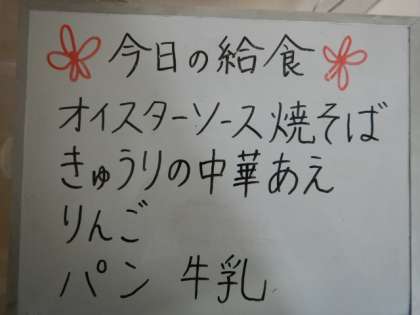 今日の給食
オイスターソース焼そば
きゅうりの中華あえ
りんご
パン 牛乳